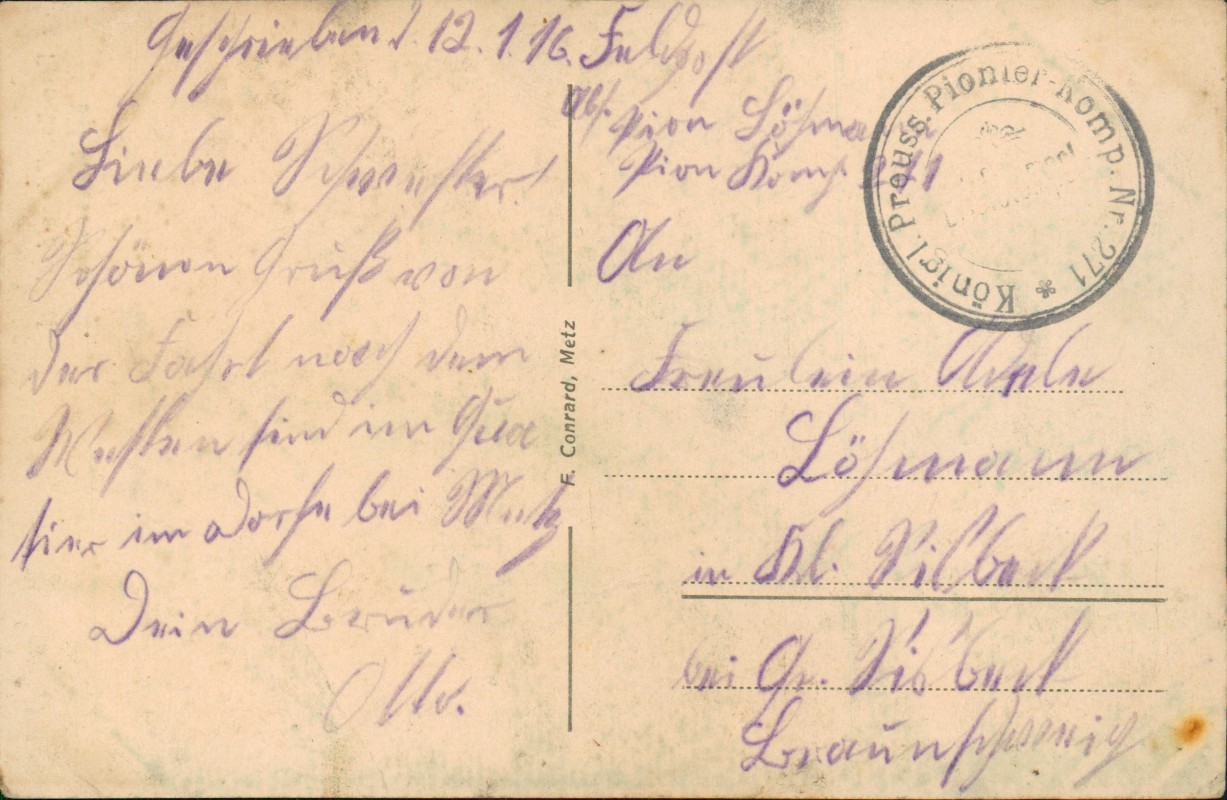 Geschrieben d. 12.1.16. Feldpost
Liebe Schwester!
Schönen Gruß von
der Fahrt nach dem
Westen sind im Qua
tier im Dorfe bei Metz
Dein Bruder
Otto.
F. Conrard, Metz
Abs. Pion Löhmann
Pion Komp. 271
An
Fräulein Adele
Löhmann
in Kl. Sisbeck
bei Gr. Sisbeck
Braunschweig
Königl. Preuss. Pionier-Komp. Nr. 271 *